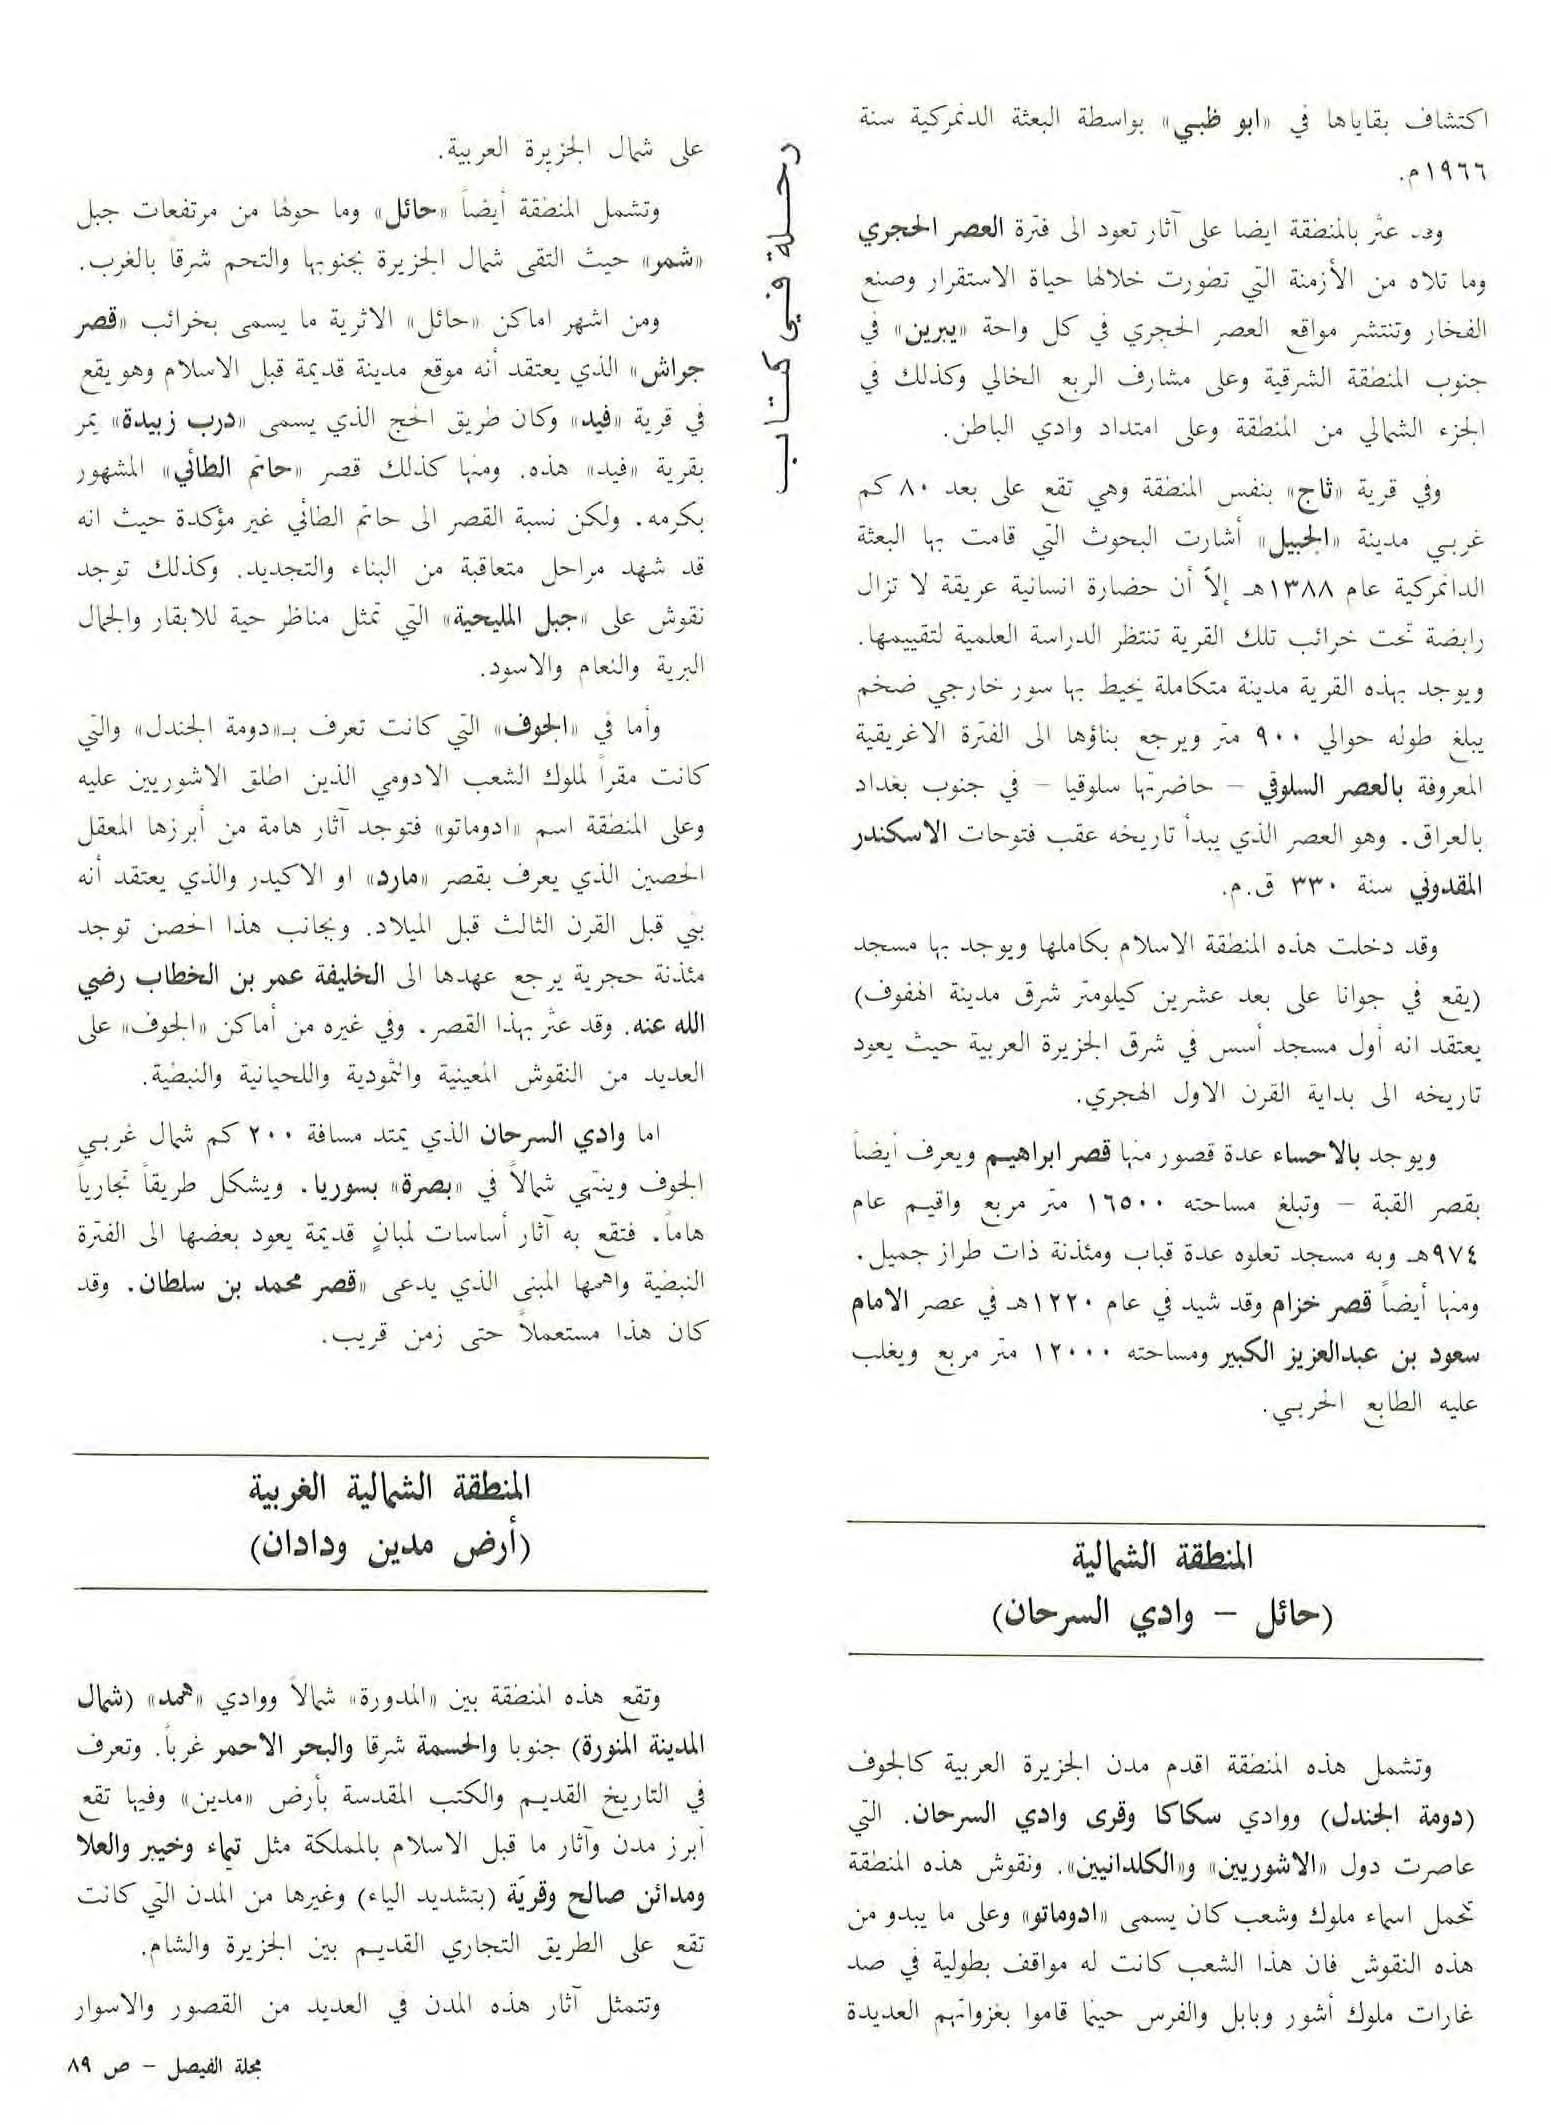 اكتشاف بقاياها في «ابو ظبي» بواسطة البعثة الدنمركية سنة
١٩٦٦م.
وقد عثر بالمنطقة ايضا على آثار تعود الى فترة العصر الحجري
وما تلاه من الأزمنة التي تطورت خلالها حياة الاستقرار وصنع
الفخار وتنتشر مواقع العصر الحجري في كل واحة «يبرين» في
جنوب المنطقة الشرقية وعلى مشارف الربع الخالي وكذلك في
الجزء الشمالي من المنطقة وعلى امتداد وادي الباطن.
وفي قرية «ثاج» بنفس المنطقة وهي تقع على بعد ٨٠ كم
غربي مدينة «الجبيل» أشارت البحوث التي قامت بها البعثة
الدانمركية عام ١٣٨٨هـ إلاّ أن حضارة انسانية عريقة لا تزال
رابضة تحت خرائب تلك القرية تنتظر الدراسة العلمية لتقييمها.
ويوجد بهذه القرية مدينة متكاملة يحيط بها سور خارجي ضخم
يبلغ طوله حوالي ٩٠٠ متر ويرجع بناؤها الى الفترة الاغريقية
المعروفة بالعصر السلوقي – حاضرتها سلوقيا – في جنوب بغداد
بالعراق. وهو العصر الذي يبدأ تاريخه عقب فتوحات الاسكندر
المقدوني سنة ٣٣٠ ق.م.
وقد دخلت هذه المنطقة الاسلام بكاملها ويوجد بها مسجد
(يقع في جوانا على بعد عشرين كيلومتر شرق مدينة الهفوف)
يعتقد انه أول مسجد أسس في شرق الجزيرة العربية حيث يعود
تاريخه الى بداية القرن الاول الهجري.
ويوجد بالاحساء عدة قصور منها قصر ابراهيم ويعرف أيضاً
بقصر القبة – وتبلغ مساحته ١٦٥٠٠ متر مربع واقيم عام
٩٧٤هـ وبه مسجد تعلوه عدة قباب ومئذنة ذات طراز جميل.
ومنها أيضاً قصر خزام وقد شيد في عام ١٢٢٠هـ في عصر الامام
سعود بن عبدالعزيز الكبير ومساحته ١٢٠٠٠ متر مربع ويغلب
عليه الطابع الحربي.
المنطقة الشمالية
(حائل – وادي السرحان)
وتشمل هذه المنطقة اقدم مدن الجزيرة العربية كالجوف
(دومة الجندل) ووادي سكاكا وقرى وادي السرحان. التي
عاصرت دول «الاشوريين» و«الكلدانيين». ونقوش هذه المنطقة
تحمل اسماء ملوك وشعب كان يسمى «ادوماتو» وعلى ما يبدو من
هذه النقوش فان هذا الشعب كانت له مواقف بطولية في صد
غارات ملوك أشور وبابل والفرس حينما قاموا بغزواتهم العديدة
رحلة في كتاب
على شمال الجزيرة العربية.
وتشمل المنطقة أيضاً «حائل» وما حولها من مرتفعات جبل
«شمر» حيث التقى شمال الجزيرة بجنوبها والتحم شرقاً بالغرب.
ومن اشهر اماكن «حائل» الاثرية ما يسمى بخرائب «قصر
جراش» الذي يعتقد أنه موقع مدينة قديمة قبل الاسلام وهو يقع
في قرية «فيد» وكان طريق الحج الذي يسمى «درب زبيدة» يمر
بقرية «فيد» هذه. ومنها كذلك قصر «حاتم الطائي» المشهور
بكرمه. ولكن نسبة القصر الى حاتم الطائي غير مؤكدة حيث انه
قد شهد مراحل متعاقبة من البناء والتجديد. وكذلك توجد
نقوش على «جبل المليحية» التي تمثل مناظر حية للابقار والجمال
البرية والنعام والاسود.
وأما في «الجوف» التي كانت تعرف بـ«دومة الجندل» والتي
كانت مقراً لملوك الشعب الادومي الذين اطلق الاشوريين عليه
وعلى المنطقة اسم «ادوماتو» فتوجد آثار هامة من أبرزها المعقل
الحصين الذي يعرف بقصر «مارد» او الاكيدر والذي يعتقد أنه
بني قبل القرن الثالث قبل الميلاد. وبجانب هذا الحصن توجد
مئذنة حجرية يرجع عهدها الى الخليفة عمر بن الخطاب رضي
الله عنه. وقد عثر بهذا القصر. وفي غيره من أماكن «الجوف» على
العديد من النقوش المعينية والثمودية واللحيانية والنبطية.
اما وادي السرحان الذي يمتد مسافة ٢٠٠ كم شمال غربي
الجوف وينتهي شمالاً في «بصرة» بسوريا. ويشكل طريقاً تجارياً
هاماً. فتقع به آثار أساسات لمبانٍ قديمة يعود بعضها الى الفترة
النبطية واهمها المبنى الذي يدعى «قصر محمد بن سلطان. وقد
كان هذا مستعملاً حتى زمن قريب.
المنطقة الشمالية الغربية
(أرض مدين ودادان)
وتقع هذه المنطقة بين «المدورة» شمالاً ووادي «همد» (شمال
المدينة المنورة) جنوبا والحسمة شرقا والبحر الاحمر غرباً. وتعرف
في التاريخ القديم والكتب المقدسة بأرض «مدين» وفيها تقع
أبرز مدن وآثار ما قبل الاسلام بالمملكة مثل تيماء وخيبر والعلا
ومدائن صالح وقريّة (بتشديد الياء) وغيرها من المدن التي كانت
تقع على الطريق التجاري القديم بين الجزيرة والشام.
وتتمثل آثار هذه المدن في العديد من القصور والاسوار
مجلة الفيصل – ص ٨٩